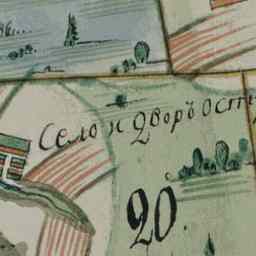 Село и дворъ Ости
20.